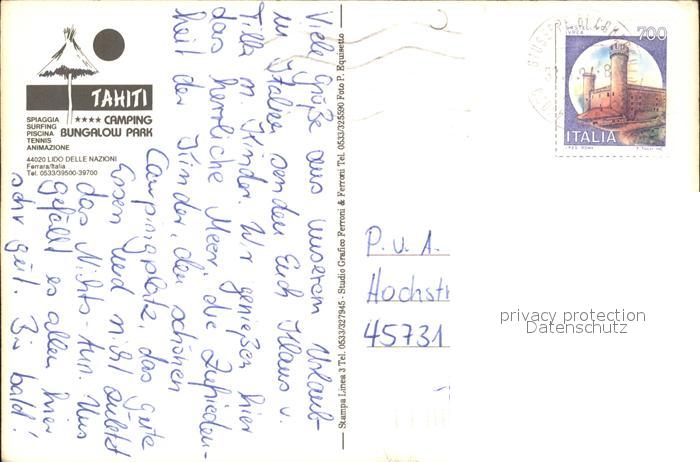 TAHITI
**** CAMPING
BUNGALOW PARK
SPIAGGIA
SURFING
PISCINA
TENNIS
ANIMAZIONE
44020 LIDO DELLE NAZIONI
Ferrara/Italia
Tel. 0533/39500-39700
Viele Grüße aus unserem Urlaub
in Italien senden Euch Klaus u.
Tilla m. Kinder. Wir genießen hier
das herrliche Meer, die Zufrieden-
heit der Kinder, den schönen
Campingplatz, das gute
Essen und nicht zuletzt
das Nichts-tun. Uns
gefällt es allen hier
sehr gut. Bis bald!
Stampa Linea 3 Tel. 0533/327945 - Studio Grafico Perroni & Ferroni Tel. 0533/325590 Foto P. Equisetto
700
ITALIA
P. u. A.
Hochstr
45731
privacy protection
Datenschutz